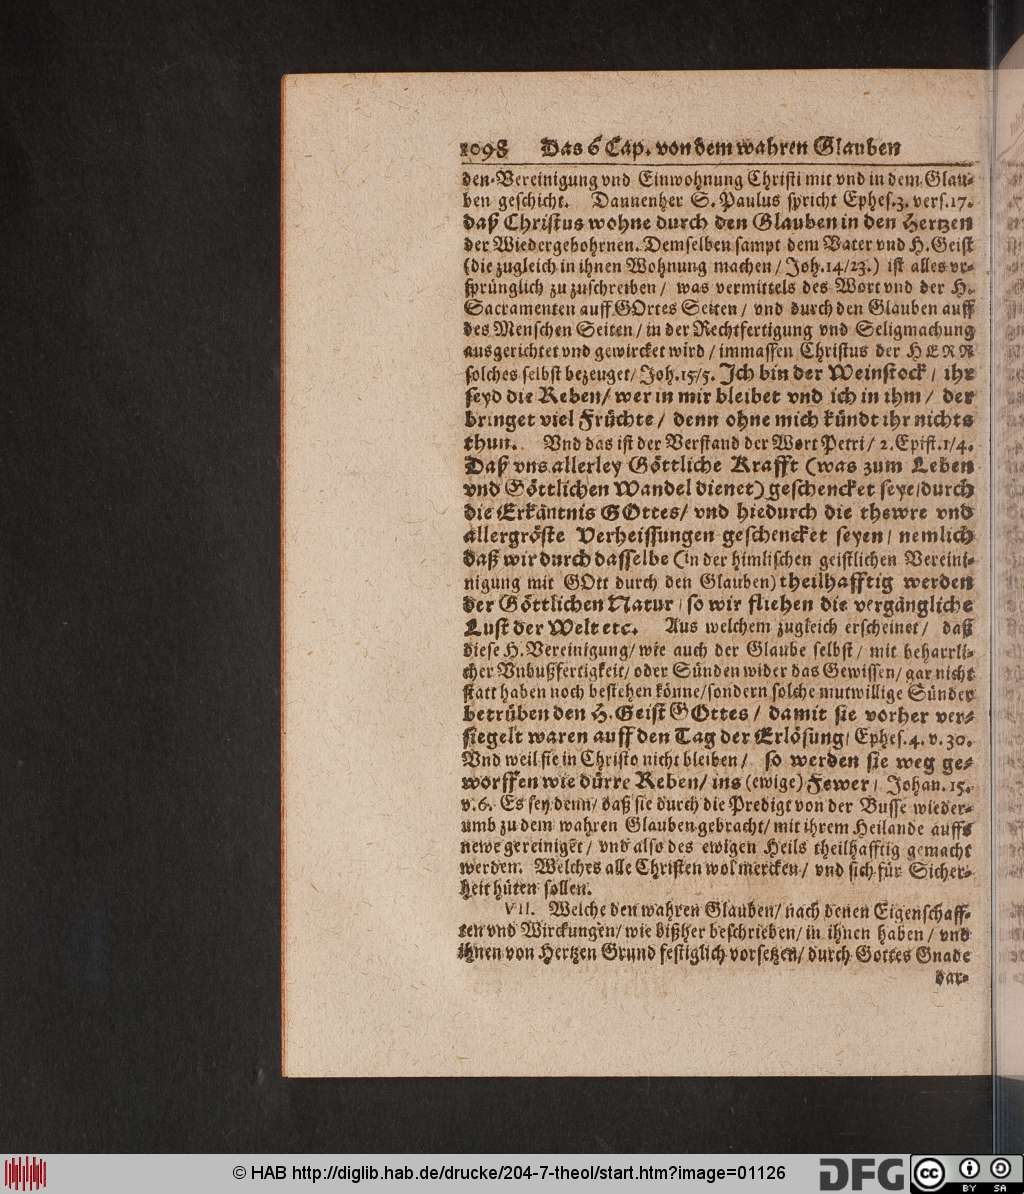 1098 Das 6 Cap. von dem wahren Glauben
den-Vereinigung vnd Einwohnung Christi mit vnd in dem Glau-
ben geschicht. Dannenher S. Paulus spricht Ephes.3. vers.17.
daß Christus wohne durch den Glauben in den Hertzen
der Wiedergebohrnen. Demselben sampt dem Vater vnd H. Geist
(die zugleich in ihnen Wohnung machen/ Joh.14/23.) ist alles vr-
sprünglich zu zuschreiben/ was vermittels des Wort vnd der H.
Sacramenten auff GOttes Seiten/ vnd durch den Glauben auff
des Menschen Seiten/ in der Rechtfertigung vnd Seligmachung
ausgerichtet vnd gewircket wird/ immassen Christus der HERR
solches selbst bezeuget/ Joh.15/5. Ich bin der Weinstock/ ihr
seyd die Reben/ wer in mir bleibet vnd ich in ihm/ der
bringet viel Früchte/ denn ohne mich kündt ihr nichts
thun. Vnd das ist der Verstand der Wort Petri/ 2.Epist.1/4.
Daß vns allerley Göttliche Krafft (was zum Leben
vnd Göttlichen Wandel dienet) geschencket seye/durch
die Erkäntnis GOttes/ vnd hiedurch die thewre vnd
allergröste Verheissungen geschencket seyen/ nemlich
daß wir durch dasselbe (in der himlischen geistlichen Vereini-
nigung mit GOtt durch den Glauben) theilhafftig werden
der Göttlichen Natur/ so wir fliehen die vergängliche
Lust der Welt etc. Aus welchem zugleich erscheinet/ daß
diese H. Vereinigung/ wie auch der Glaube selbst/ mit beharrli-
cher Vnbußfertigkeit/ oder Sünden wider das Gewissen/ gar nicht
statt haben noch bestehen könne/sondern solche mutwillige Sünder
betrüben den H. Geist GOttes/ damit sie vorher ver-
siegelt waren auff den Tag der Erlösung/ Ephes.4. v.30.
Vnd weil sie in Christo nicht bleiben/ so werden sie weg ge-
worffen wie dürre Reben/ ins (ewige) Fewer/ Johan.15.
v.6. Es sey denn/ daß sie durch die Predigt von der Busse wieder-
umb zu dem wahren Glauben gebracht/ mit ihrem Heilande auffs
newe gereiniget/ vnd also des ewigen Heils theilhafftig gemacht
werden. Welches alle Christen wol mercken/ vnd sich für Sicher-
heit hüten sollen.
VII. Welche den wahren Glauben/ nach denen Eigenschaff-
ten vnd Wirckungen/ wie bißher beschrieben/ in ihnen haben/ vnd
ihnen von Hertzen Grund festiglich vorsetzen/ durch Gottes Gnade
dar-
© HAB http://diglib.hab.de/drucke/204-7-theol/start.htm?image=01126
DFG
cc BY SA